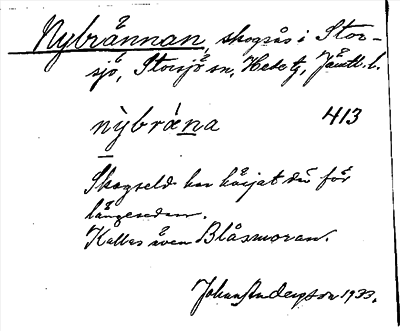 Nybrännan, skogsås i Stor-
sjö, Storsjö sn, Hede tg, Jämtl. l.
nỳbrǽna 413
Skogseld har härjat där för
längesedan.
Kallas även Blåsmoran.
Johan Anderzson 1933.